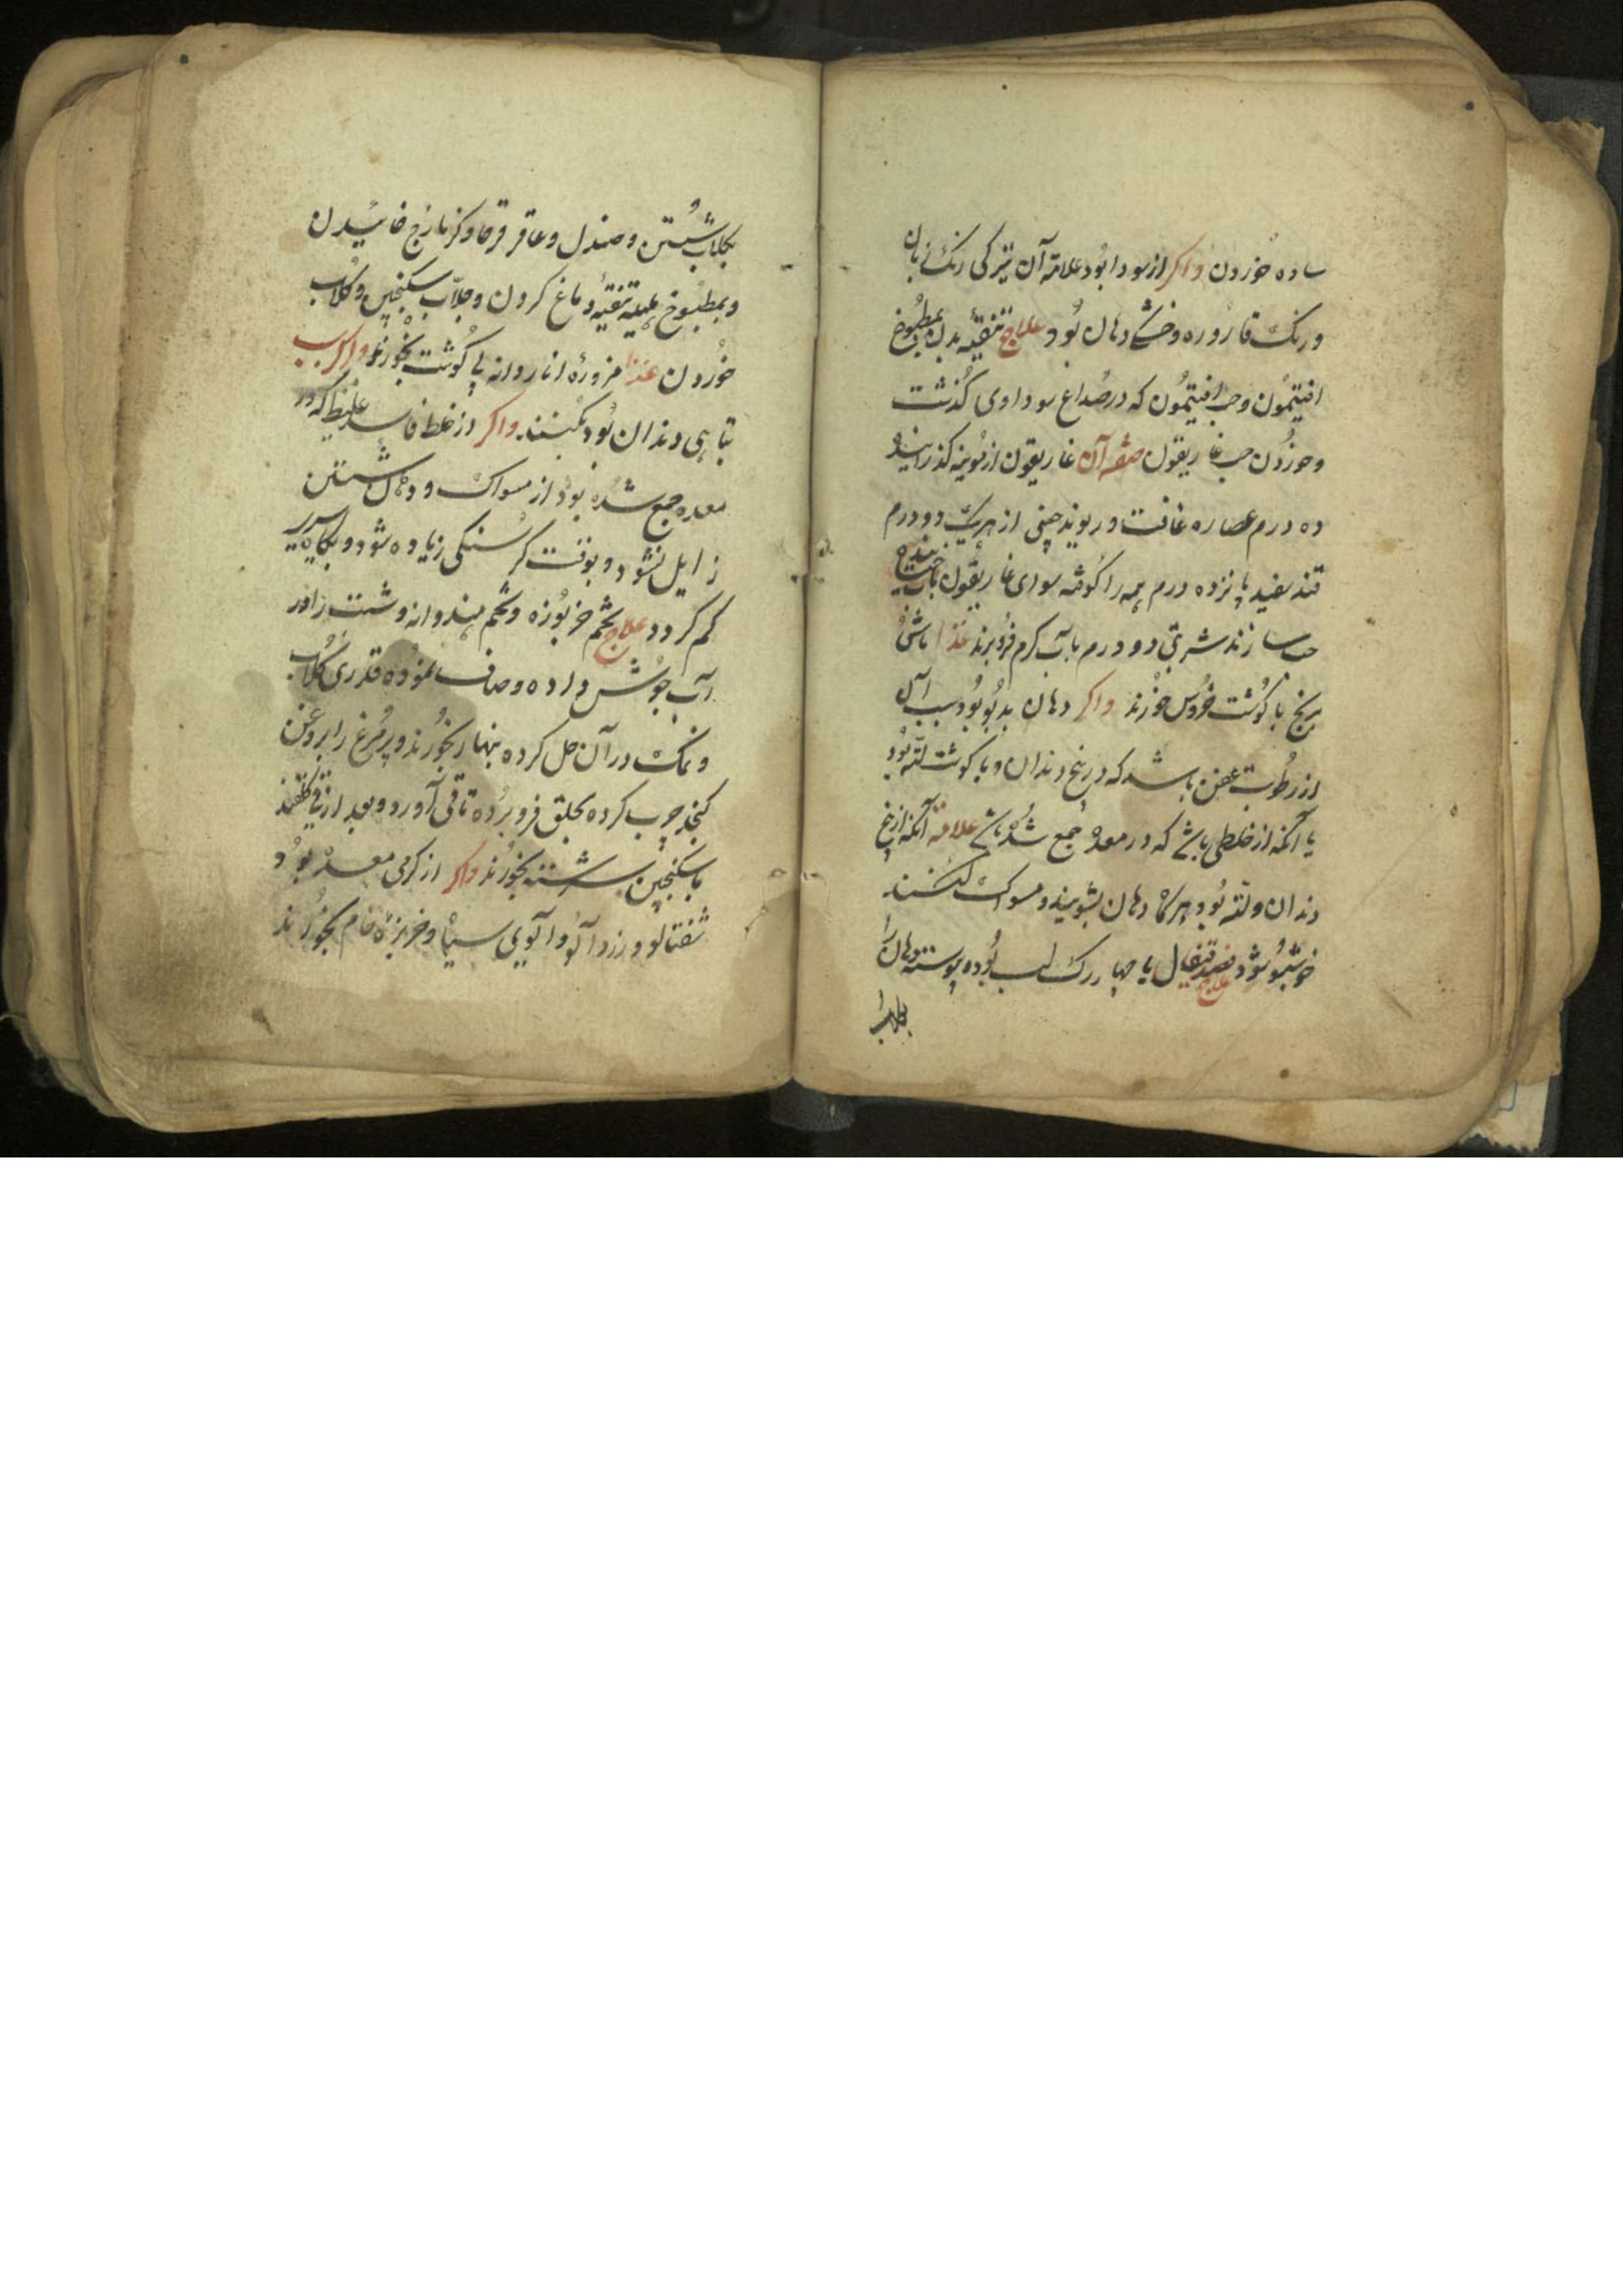 ساده خوردن واکر از سودا بود علامة آن تیرکی رنک زبان
و رنک قاروره و خشکی دهان بود علاج تنقیه بدن بمطبوخ
افتیمون و حب افتیمون که در صداع سوداوی گذشت
و خوردن حب غاریقون صفة آن غاریقون از موینه کذرانیده
ده درم عصاره غافت و ریوند چینی از هریک دو درم
قند سفید پانزده درم همه را کوفته سوای غاریقون بآب
حب سازند شربتی دو درم بآب کرم فرو برند غذا ماش
برنج با کوشت خروس خورند واکر دهان بدبو بود سبب آن
از رطوبت عفن باشد که در بیخ دندان و یا کوشت لثه بود
یا آنکه از خلطی باشد که در معده جمع شده باشد علامة آنکه از بیخ
دندان و لثه بود هرکاه دهان بشویند و مسواک کنند
خوشبو شود علاج فصد قیفال یا چهار رک لب بوده پیوسته دهان را
بکلاب
بکلاب شستن و صندل و عاقرقرحا و کزمازج خائیدن
و بمطبوخ هلیله تنقیه دماغ کردن و جلاب سکنجبین و کلاب
خوردن غذا مزوره اناردانه بی کوشت بخورند واکر سبب
تباهی دندان بود بکنند واکر از خلط فاسد غلیظ که در
معده جمع شده بود از مسواک و دهان شستن
زایل نشود و بوقت کرسنکی زیاده شود و بکاه سیری
کم کردد علاج تخم خربوزه و تخم هندوانه و شبت را در
آب جوش داده و صاف نموده قدری کلاب
و نمک در آن حل کرده بنهار بخورند و پر مرغ را بروغن
کنجد چرب کرده بحلق فرو برده تا قی آورد و بعد از قی کلقند
با سکنجبین سرشته بخورند واکر از کرمی معده بود
شفتالو و زردآلو و آلوی سیاه و خربزه خام بخورند